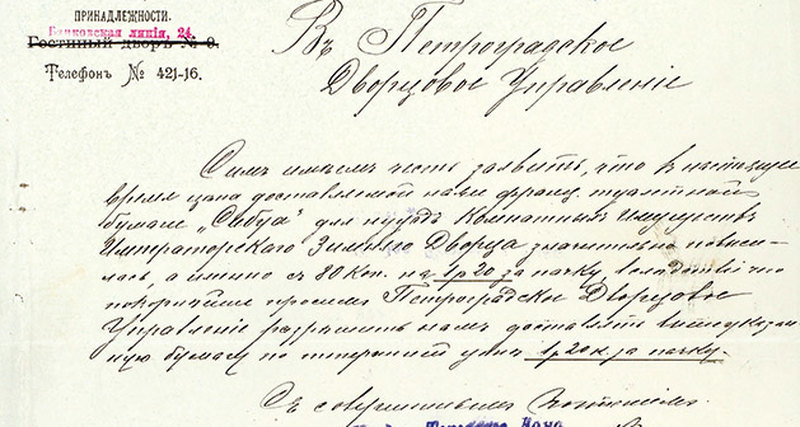 ПРИНАДЛЕЖНОСТИ.
Банковская линія, 24.
Гостиный дворъ № 9.
Телефонъ № 421-16.
Въ Петроградское
Дворцовое Управленіе
Симъ имѣемъ честь заявить, что въ настоящее
время цѣна доставляемой нами франц. туалетной
бумаге для нуждъ Комнатныхъ Имуществъ
Императорскаго Зимняго Дворца значительно повыси-
лась, а именно съ 80 Коп. на 1р20 за пачку, вслѣдствіе чего
покорнѣйше просимъ Петроградское Дворцовое
Управленіе разрѣшить намъ доставлять вышеуказан-
ную бумагу по теперешней цѣнѣ 1р.20к. за пачку.
Съ совершеннымъ почтеніемъ